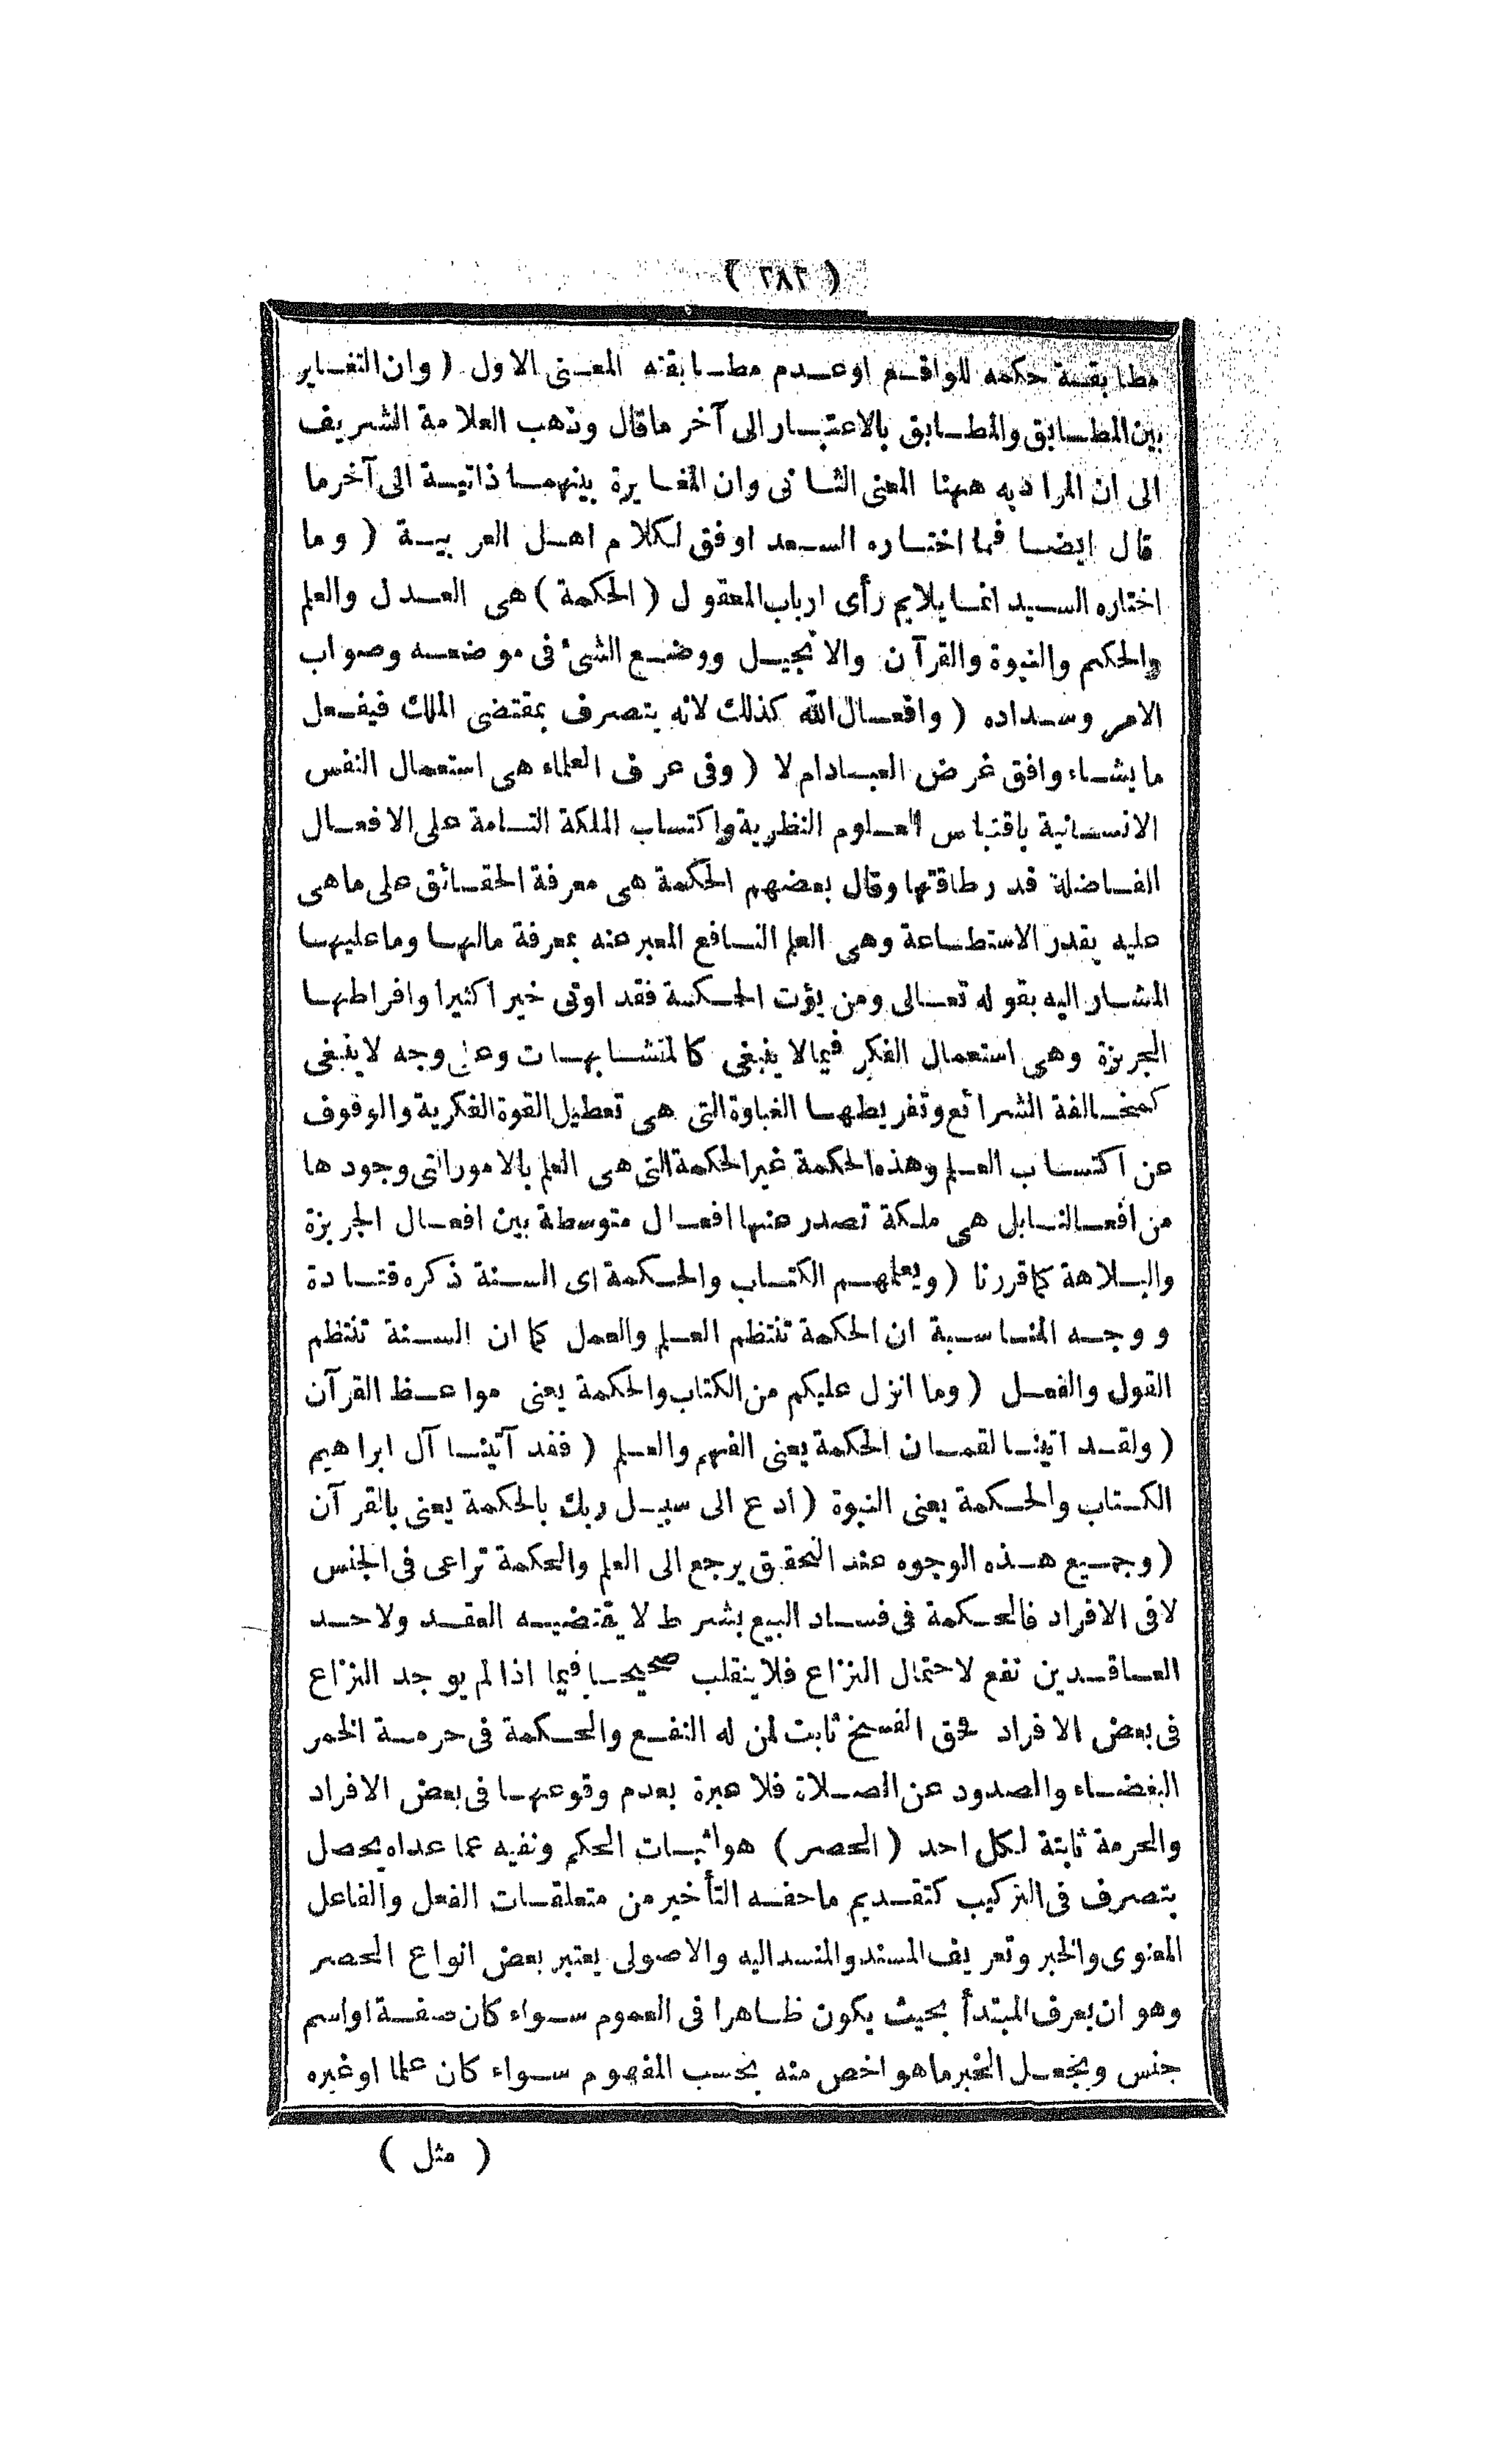 ( ٢٨٢ )
مطابقة حكمه للواقع او عدم مطابقته المعنى الاول ( وان التغاير
بين المطابق والمطابق بالاعتبار الى آخر ماقال وذهب العلامة الشريف
الى ان المراد به ههنا المعنى الثانى وان المغايرة بينهما ذاتية الى آخر ما
قال ايضا فما اختاره السعد اوفق لكلام اهل العربية ( وما
اختاره السيد انما يلايم رأى ارباب المعقول ( الحكمة ) هى العدل والعلم
والحكم والنبوة والقرآن والانجيل ووضع الشئ فى موضعه وصواب
الامر وسداده ( وافعال الله كذلك لانه يتصرف بمقتضى الملك فيفعل
ما يشاء وافق غرض العباد ام لا ( وفى عرف العلماء هى استعمال النفس
الانسانية باقتباس العلوم النظرية واكتساب الملكة التامة على الافعال
الفاضلة قدر طاقتها وقال بعضهم الحكمة هى معرفة الحقائق على ماهى
عليه بقدر الاستطاعة وهى العلم النافع المعبر عنه بمعرفة مالها وما عليها
المشار اليه بقوله تعالى ومن يؤت الحكمة فقد اوتى خيرا كثيرا وافراطها
الجربزة وهى استعمال الفكر فيما لا ينبغى كالمتشابهات وعلى وجه لا ينبغى
كمخالفة الشرائع وتفريطها الغباوة التى هى تعطيل القوة الفكرية والوقوف
عن اكتساب العلم وهذه الحكمة غير الحكمة التى هى العلم بالامور التى وجودها
من افعالنا بل هى ملكة تصدر عنها افعال متوسطة بين افعال الجربزة
والبلاهة كما قررنا ( ويعلمهم الكتاب والحكمة اى السنة ذكره قتادة
ووجه المناسبة ان الحكمة تنتظم العلم والعمل كما ان السنة تنتظم
القول والفعل ( وما انزل عليكم من الكتاب والحكمة يعنى مواعظ القرآن
( ولقد اتينا لقمان الحكمة يعنى الفهم والعلم ( فقد آتينا آل ابراهيم
الكتاب والحكمة يعنى النبوة ( ادع الى سبيل ربك بالحكمة يعنى بالقرآن
( وجميع هذه الوجوه عند التحقيق يرجع الى العلم والحكمة تراعى فى الجنس
لا فى الافراد فالحكمة فى فساد البيع بشرط لا يقتضيه العقد ولاحد
العاقدين نفع لاحتمال النزاع فلا ينقلب صحيحا فيما اذا لم يوجد النزاع
فى بعض الافراد فحق الفسخ ثابت لمن له النفع والحكمة فى حرمة الخمر
البغضاء والصدود عن الصلاة فلا عبرة بعدم وقوعها فى بعض الافراد
والحرمة ثابتة لكل احد ( الحصر ) هو اثبات الحكم ونفيه عما عداه يحصل
بتصرف فى التركيب كتقديم ماحقه التأخير من متعلقات الفعل والفاعل
المعنوى والخبر وتعريف المسند والمسند اليه والاصولى يعتبر بعض انواع الحصر
وهو ان يعرف المبتدأ بحيث يكون ظاهرا فى العموم سواء كان صفة او اسم
جنس ويجعل الخبر ما هو اخص منه بحسب المفهوم سواء كان علما او غيره
( مثل )